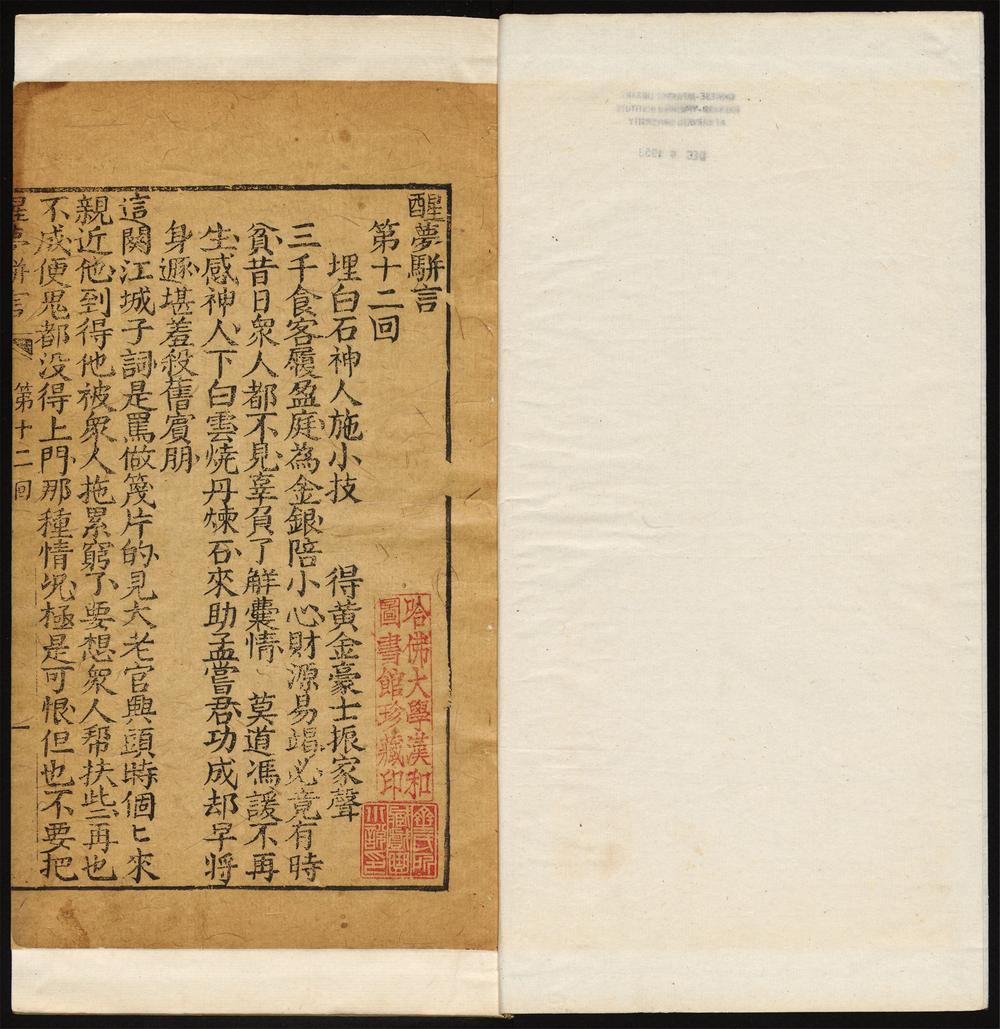 醒夢駢言
第十二回
埋白石神人施小技　得黃金豪士振家聲
三千食客履盈庭為金銀陪小心財源易竭必竟有時
貧昔日衆人都不見辜負了解囊情　莫道馮諼不再
生感神人下白雲燒丹煉石來助孟嘗君功成却早將
身遯堪羞殺舊賓朋
這闋江城子詞是罵做篾片的見大老官興頭時個匕來
親近他到得他被衆人拖累窮了要想衆人帮扶些再也
不成便鬼都没得上門那種情况極是可恨但也不要把
醒夢駢言　第十二回　一
哈佛大學漢和
圖書館珍藏印
CHINESE-JAPANESE LIBRARY
HARVARD-YENCHING INSTITUTE
HARVARD UNIVERSITY
DEC 4 1953